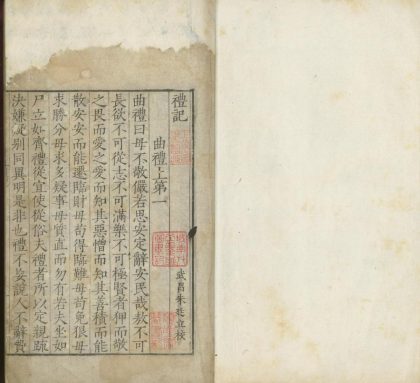 禮記 武昌朱廷立校
曲禮上第一
曲禮曰毋不敬儼若思安定辭安民哉敖不可
長欲不可從志不可滿樂不可極賢者狎而敬
之畏而愛之愛而知其惡憎而知其善積而能
散安安而能遷臨財毋苟得臨難毋苟免狠毋
求勝分毋求多疑事毋質直而勿有若夫坐如
尸立如齊禮從宜使從俗夫禮者所以定親疏
決嫌疑别同異明是非也禮不妄說人不辭費